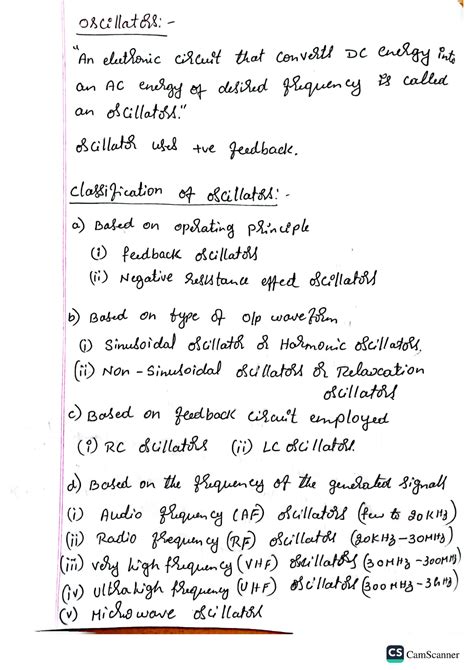 Oscillators:-
"An eletronic circuit that converts DC energy into
an AC energy of desired frequency is called
an oscillators."
Oscillator uses +ve feedback.
Classification of oscillators:-
a) Based on operating principle
(i) feedback oscillators
(ii) Negative resistance effed oscillators
b) Based on type of o/p waveform
(i) Sinusoidal oscillator or Harmonic oscillators.
(ii) Non-Sinusoidal oscillators or Relaxcation
oscillators
c) Based on feedback circuit employed
(i) RC oscillators (ii) LC oscillators.
d) Based on the frequency of the generated signals
(i) Audio frequency (AF) oscillators (few to 20KHz)
(ii) Radio frequency (RF) oscillators (20KHz-30MHz)
(iii) very high frequency (VHF) oscillators (30MHz-300MHz)
(iv) ultrahigh frequency (UHF) oscillators (300MHz-3GHz)
(v) Microwave oscillators
CS CamScanner